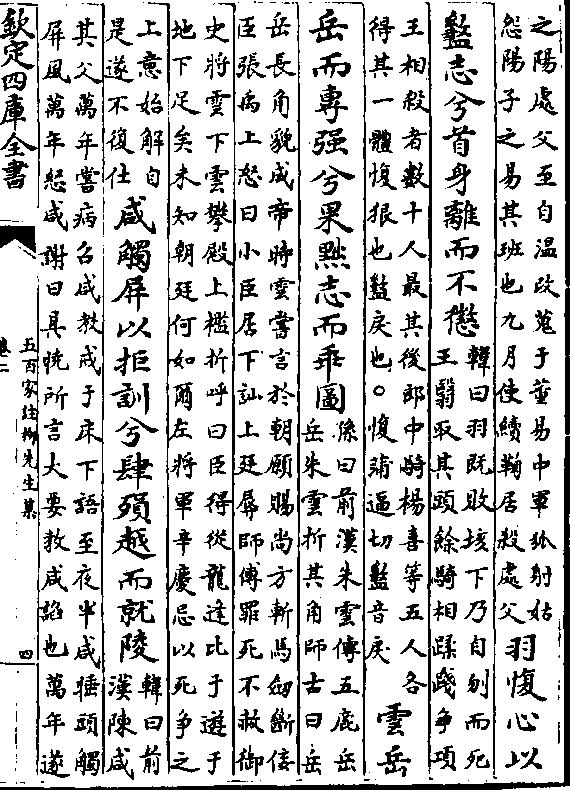 之陽處父至自溫改蒐于董易中軍狐射姑
怨陽子之易其班也九月使續鞠居殺處父
羽愎心以
盭志兮首身離而不懲
韓曰羽既敗垓下乃自刎而死
王翳取其頭餘騎相蹂踐爭項
王相殺者數十人最其後郎中騎楊喜等五人各
得其一體愎狠也盭戾也○愎蒲逼切盭音戾
雲岳
岳而專强兮果黜志而乖圖
孫曰前漢朱雲傳五鹿岳
岳朱雲折其角師古曰岳
岳長角貌成帝時雲嘗言於朝願賜尚方斬馬劒斷佞
臣張禹上怒曰小臣居下訕上廷辱師傅罪死不赦御
史將雲下雲攀殿上檻折呼曰臣得從龍逄比干遊于
地下足矣未知朝廷何如爾左將軍辛慶忌以死爭之
上意始解自
是遂不復仕
咸觸屏以拒訓兮肆殞越而就陵
韓曰前
漢陳咸
其父萬年嘗病召咸教戒于床下語至夜半咸睡頭觸
屏風萬年怒咸謝曰具曉所言大要教咸諂也萬年遂
欽定四庫全書
卷二
五百家註柳先生集
四